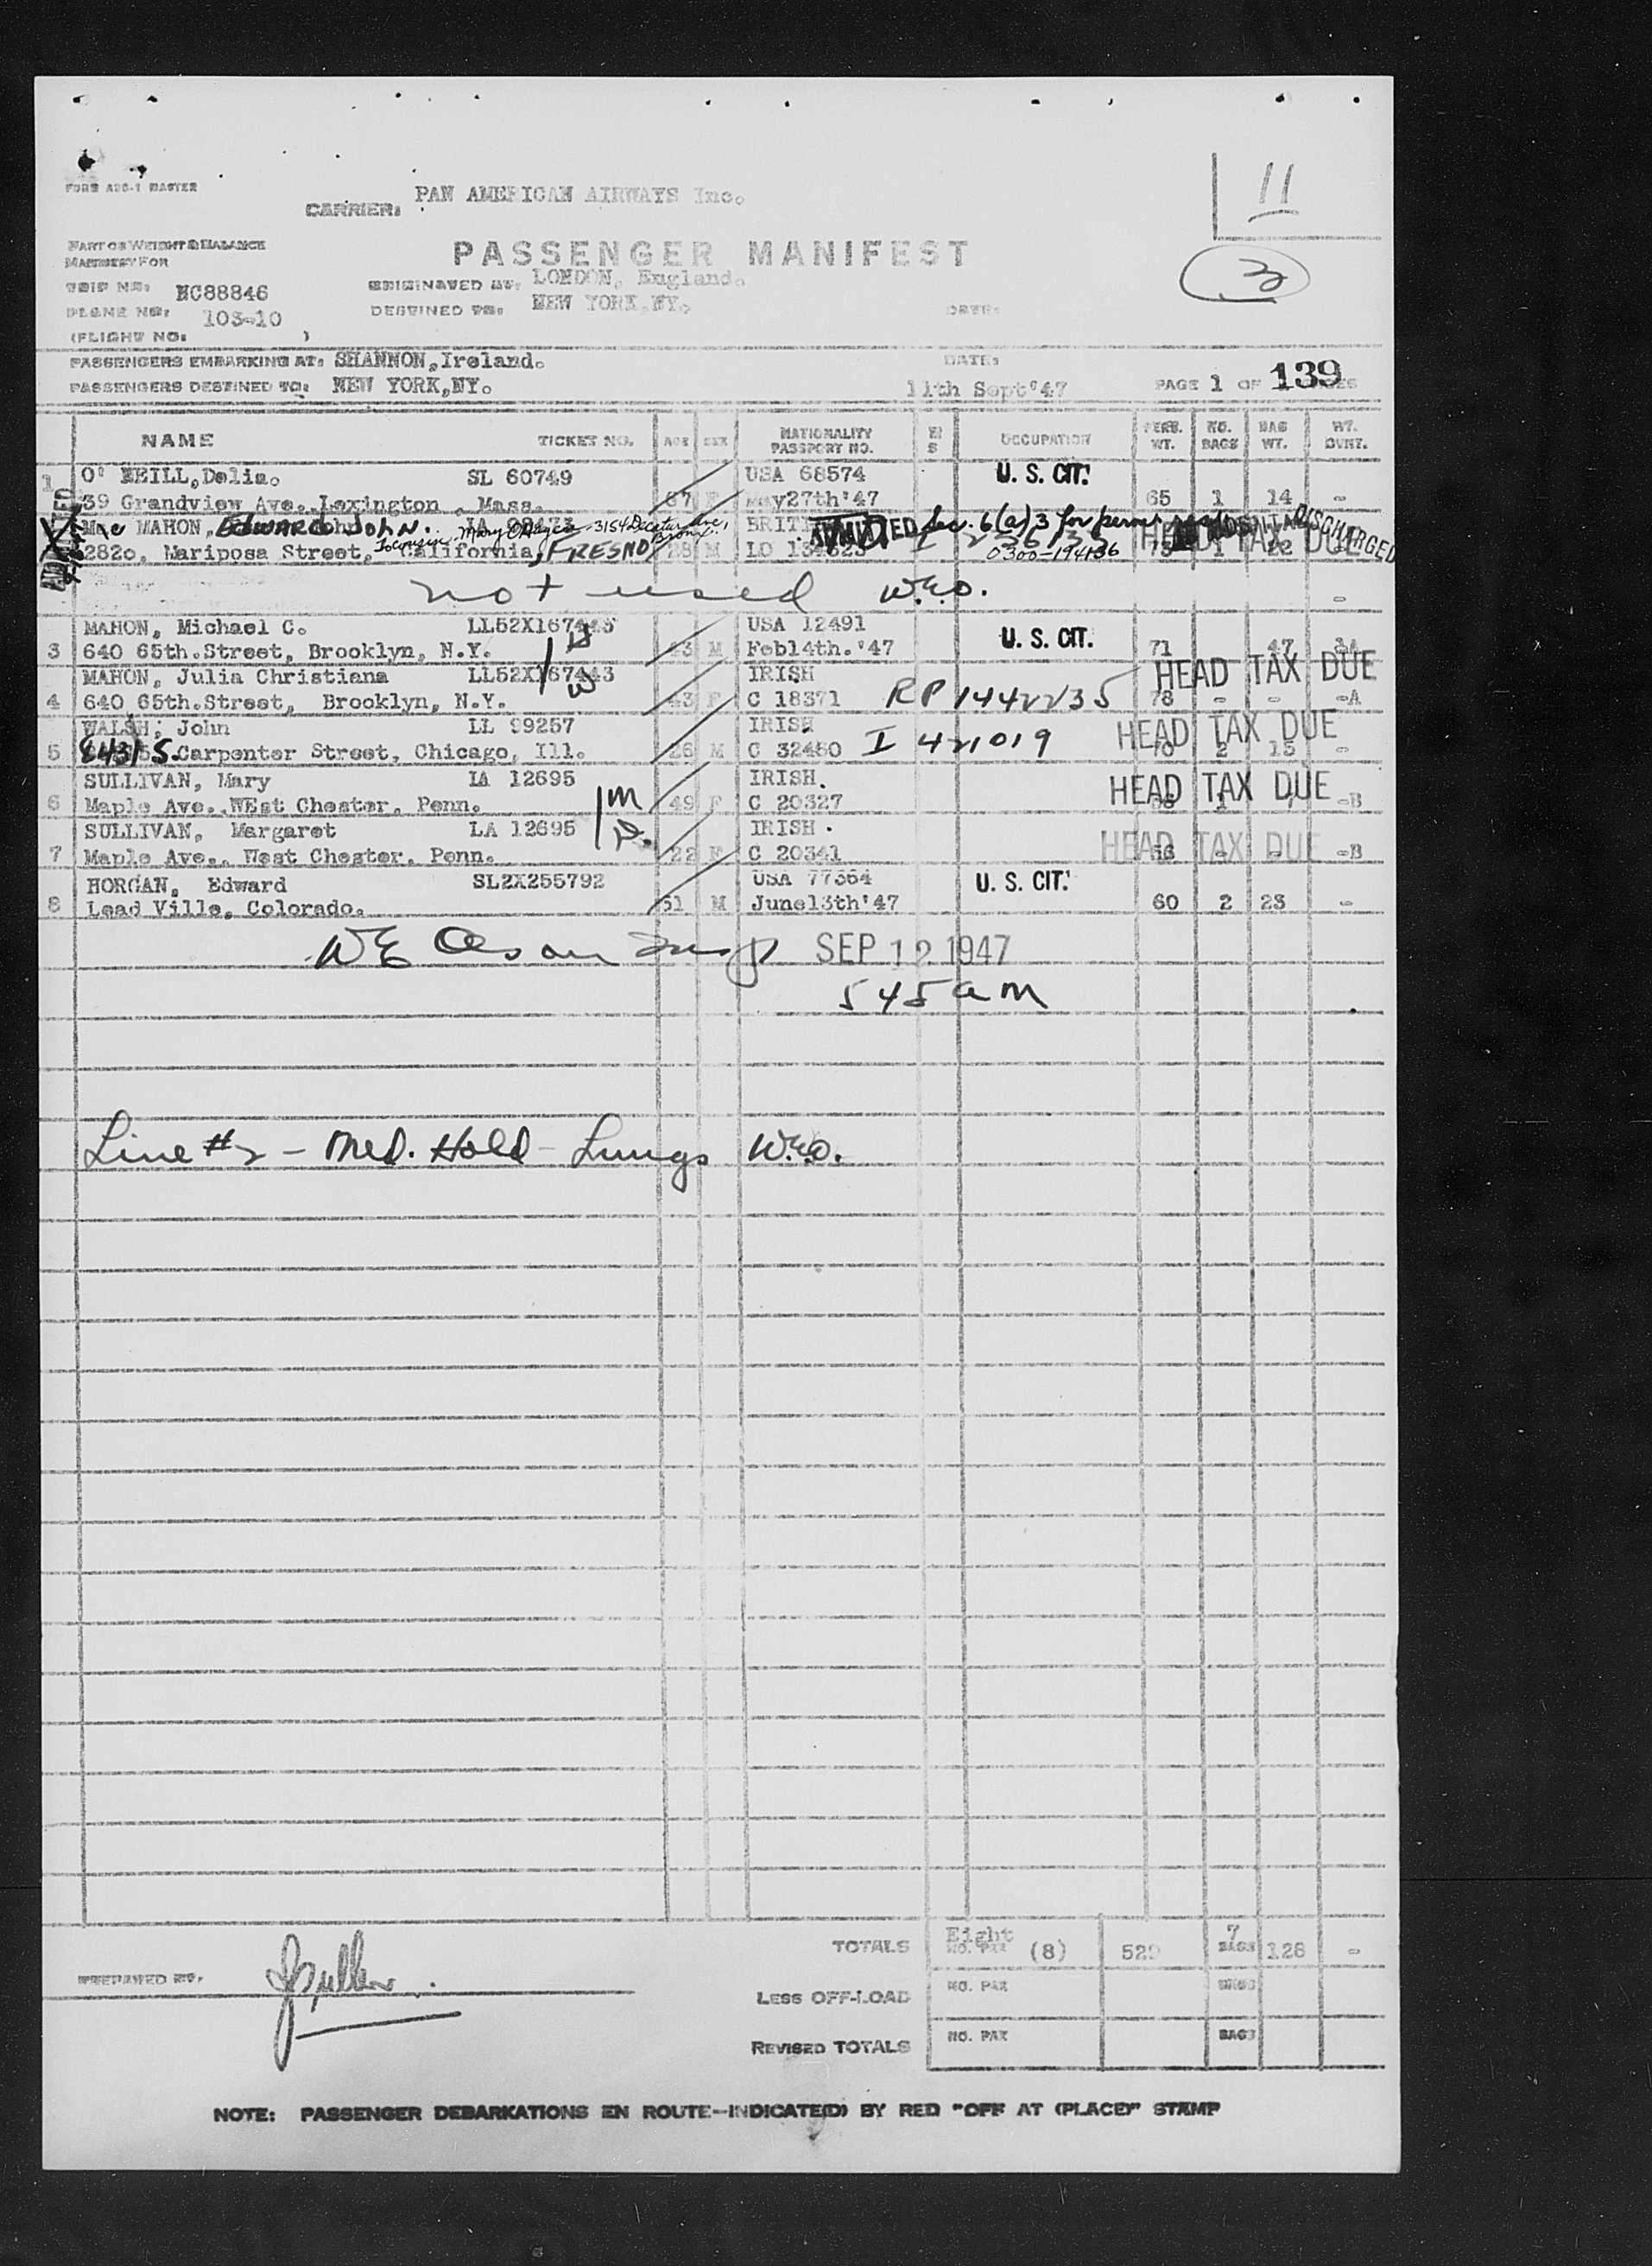 FORM ABC-1 MASTER
CARRIER: PAN AMERICAN AIRWAYS Inc.
11
PART OF WEIGHT & BALANCE
MANIFEST FOR
PASSENGER MANIFEST
3
TRIP NO: NC88846
ORIGINATED AT: LONDON, England.
PLANE NO: 103-10
DESTINED TO: NEW YORK,NY.
DATE:
(FLIGHT NO: )
PASSENGERS EMBARKING AT: SHANNON,Ireland.
DATE:
PASSENGERS DESTINED TO: NEW YORK,NY.
11th Sept'47
PAGE 1 OF 139
NAME TICKET NO. AGE SEX NATIONALITY PASSPORT NO. OCCUPATION PERS. WT. NO. BAGS BAG WT. WT. OVNT.
1 O' NEILL,Delia. SL 60749 USA 68574 U. S. CIT.
39 Grandview Ave. Lexington , Mass. 67 F May27th'47 65 1 14 -
Mac MAHON, EDWARD JOHN. ADMITTED Sec. 6(a)3 for HOSPITAL DISCHARGED
To cousin Mary 3154 Decatur Ave., Bronx.
2820, Mariposa Street, California, FRESNO 28 M LO 0300-194136 HEAD TAX DUE 73 1 22
not used W.E.O. -
MAHON, Michael C. LL52X167443 USA 12491
3 640 65th.Street, Brooklyn, N.Y. 43 M Feb14th.'47 U. S. CIT. 71 47
MAHON, Julia Christiana LL52X167443 IRISH HEAD TAX DUE
4 640 65th.Street, Brooklyn, N.Y. 43 F C 18371 RP 1442235 78 - - -A
WALSH, John LL 99257 IRISH HEAD TAX DUE
5 8431 S. Carpenter Street, Chicago, Ill. 26 M C 32460 I 421019 70 2 15 -
SULLIVAN, Mary LA 12695 IRISH. HEAD TAX DUE
6 Maple Ave. WEst Chester, Penn. 49 F C 20327 -B
SULLIVAN, Margaret LA 12695 IRISH . HEAD TAX DUE
7 Maple Ave., West Chester. Penn. 22 F C 20341 56 - - -B
HORGAN, Edward SL2X255792 USA 77364 U. S. CIT.
8 Lead Ville, Colorado. 51 M June13th'47 60 2 23 -
SEP 12 1947
545 am
Line #2 - Med. Hold - Lungs W.E.O.
TOTALS Eight NO. PAX (8) 529 7 BAGS 126 -
PREPARED BY.
LESS OFF-LOAD NO. PAX BAGS
REVISED TOTALS NO. PAX BAGS
NOTE: PASSENGER DEBARKATIONS EN ROUTE--INDICATE(D) BY RED "OFF AT (PLACE)" STAMP